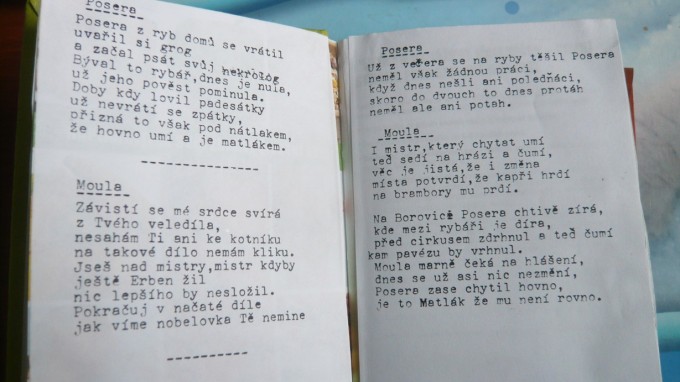 Posera
Posera z ryb domů se vrátil
uvařil si grog
a začal psát svůj nekrolog
Býval to rybář,dnes je nula,
už jeho pověst pominula.
Doby kdy lovil padesátky
už nevrátí se zpátky,
přizná to však pod nátlakem,
že hovno umí a je matlákem.
--------------
Moula
Závistí se mé srdce svírá
z Tvého veledíla,
nesahám Ti ani ke kotníku
na takové dílo nemám kliku.
Jseš nad mistry,mistr kdyby
ještě Erben žil
nic lepšího by nesložil.
Pokračuj v načaté díle
jak víme nobelovka Tě nemine
----------
Posera
Už z večera se na ryby těšil Posera
neměl však žádnou práci,
když dnes nešli ani poledňáci,
skoro do dvouch to dnes protáh
neměl ale ani potah.
Moula
I mistr,který chytat umí
teď sedí na hrázi a čumí,
věc je jistá,že i změna
místa potvrdí,že kapři hrdí
na brambory mu prdí.
Na Borovici Posera chtivě zírá,
kde mezi rybáři je díra,
před cirkusem zdrhnul a teď čumí
kam pavézu by vrhnul.
Moula marně čeká na hlášení,
dnes se už asi nic nezmění,
Posera zase chytil hovno,
je to Matlák že mu není rovno.